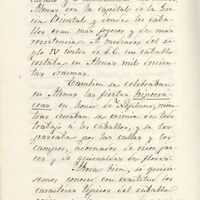 Atenas era la capital de la Gre-
cia Oriental y donde los caba-
llos eran mas fogosos y de mas
resistencia. A mediados del si-
glo IV antes de J.C. un caballo
costaba en Atenas mil doscien-
tas dracmas.
Tambien se celebraban
en Atenas las fiestas hipocra-
cias en honor de Neptuno; mien-
tras duraban se eximia de todo
trabajo a los caballos, y se les
paseaba por las calles y los
campos, adornados de ricos jaeces
y de guirnaldas de flores.
Ahora bien, si quere-
mos conocer con exactitud los
caracteres tipicos del caballo